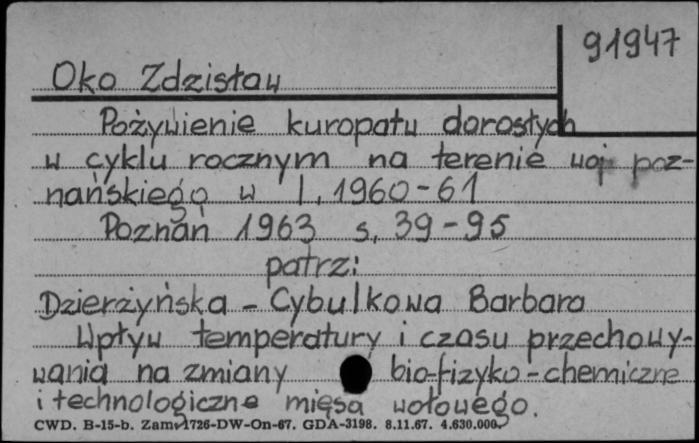 91947
Oko Zdzisław
Pożywienie kuropatw dorosłych
w cyklu rocznym na terenie woj poz-
nańskiego w l. 1960-61
Poznań 1963 s. 39-95
patrz:
Dzierżyńska-Cybulkowa Barbara
Wpływ temperatury i czasu przechowy-
wania na zmiany bio-fizyko-chemiczne
i technologiczne mięsa wołowego.
CWD. B-15-b. Zam. 1726-DW-On-67. GDA-3198. 8.11.67. 4.630.000.